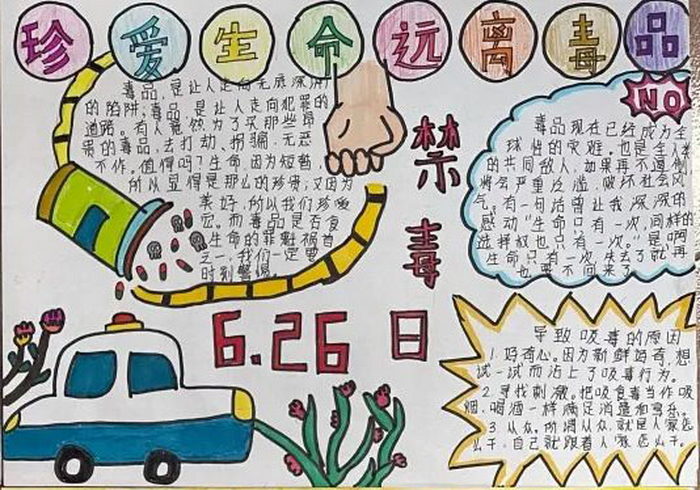 珍爱生命远离毒品
毒品,是让人走向无底深渊
的陷阱,毒品,是让人走向犯罪的
道路。有人竟然为了买那些昂
贵的毒品,去打劫、拐骗,无恶
不作。值得吗?生命因为短暂,
所以显得是那么的珍贵;又因为
美好,所以我们珍惜
它。而毒品是吞食
生命的罪魁祸首
之一,我们一定要
时刻警惕。
禁毒
NO
毒品现在已经成为全
球性的灾难。也是全人类
的共同敌人,如果再不遏制
将会严重泛滥,破坏社会风
气。有一句话曾让我深深的
感动"生命只有一次,同样的
选择权也只有一次。"是啊
生命只有一次,失去了就再
也要不回来了
6.26日
导致吸毒的原因
1.好奇心。因为新鲜好奇,想
试一试而沾上了吸毒行为。
2.寻找刺激。把吸食毒当作吸
烟、喝酒一样满足消遣和享乐。
3.从众。所谓从众,就是人家怎
么干,自己就跟着人家怎么干。